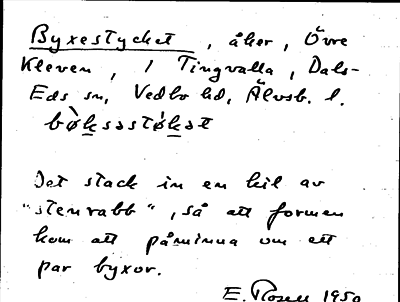 Byxestycket, åker, Övre
Kleven, i Tingvalla, Dals-
Eds sn, Vedbo hd, Älvsb. l.
bø̀ksəstø̀kət
Det stack in en kil av
"stenrabb", så att formen
kom att påminna om ett
par byxor.
E. Rosell 1950